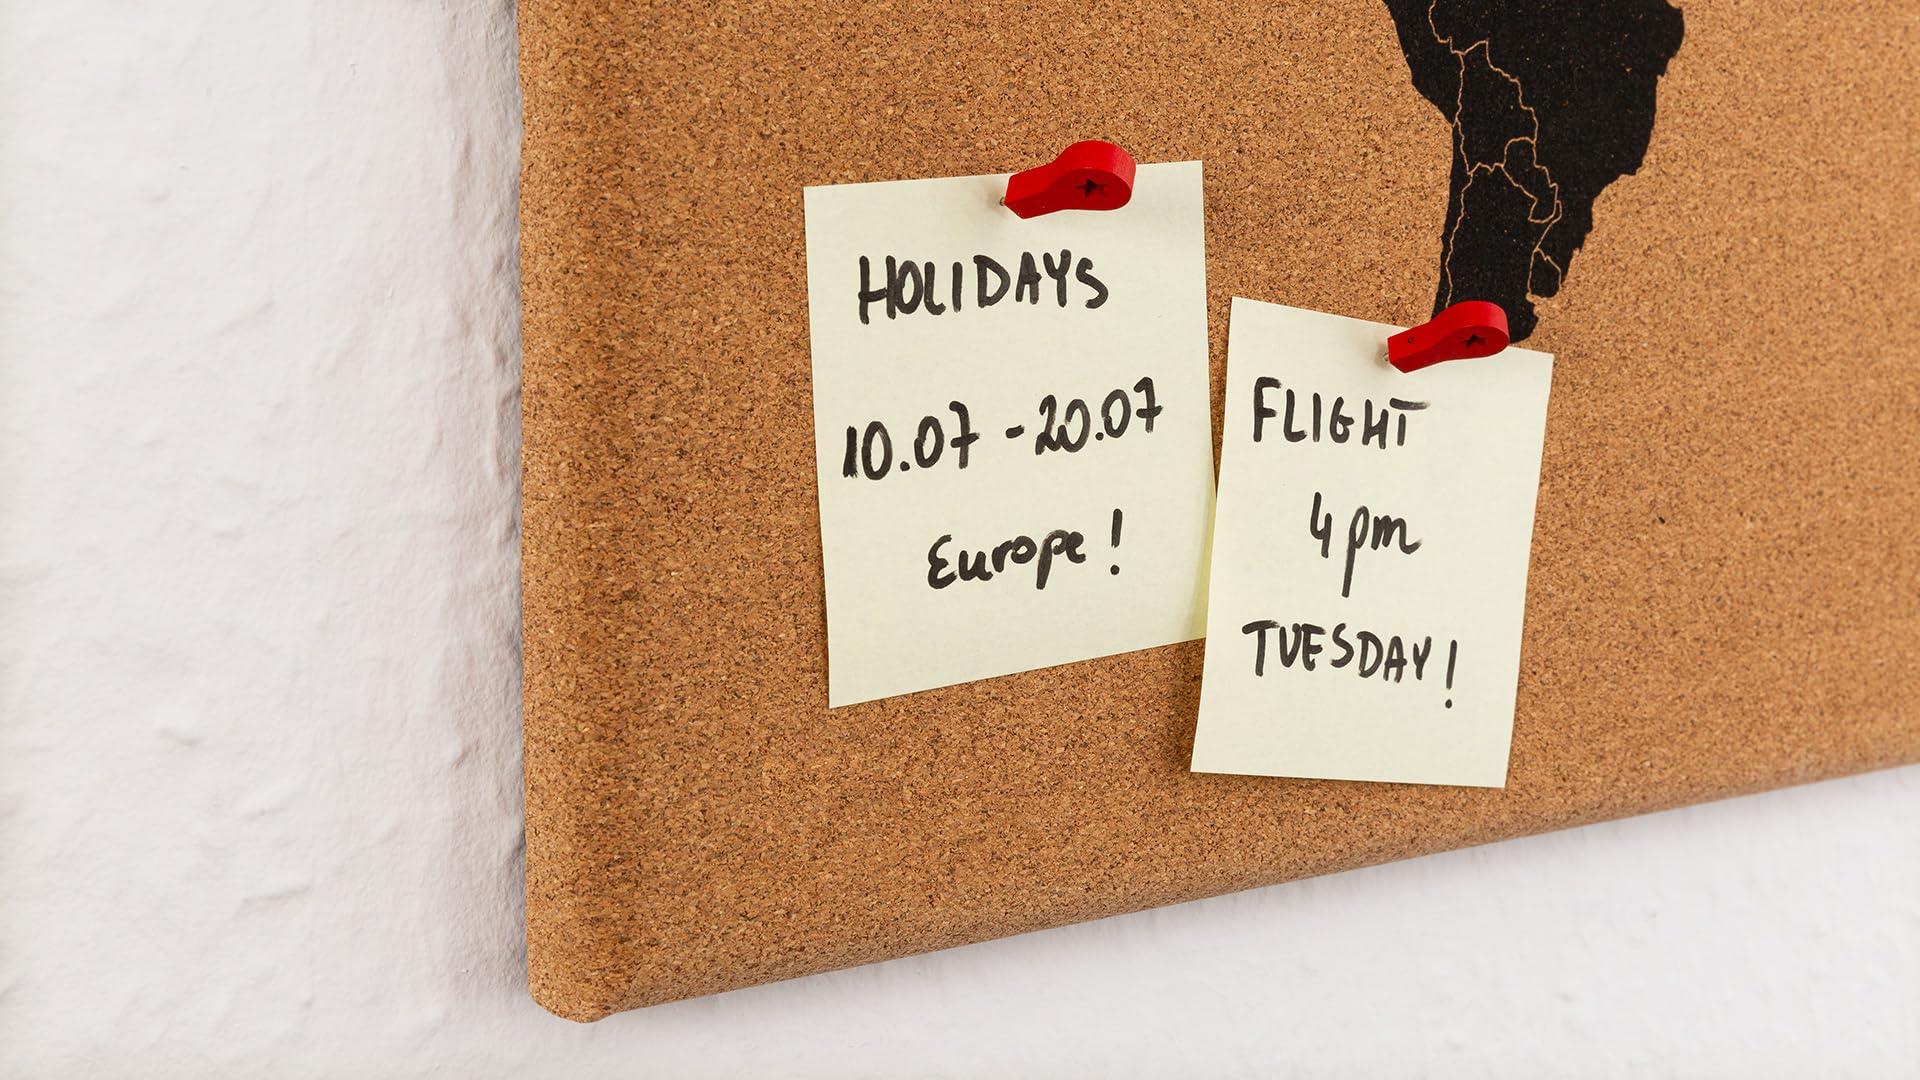 HOLIDAYS
10.07 - 20.07
Europe!
FLIGHT
4 pm
TUESDAY!